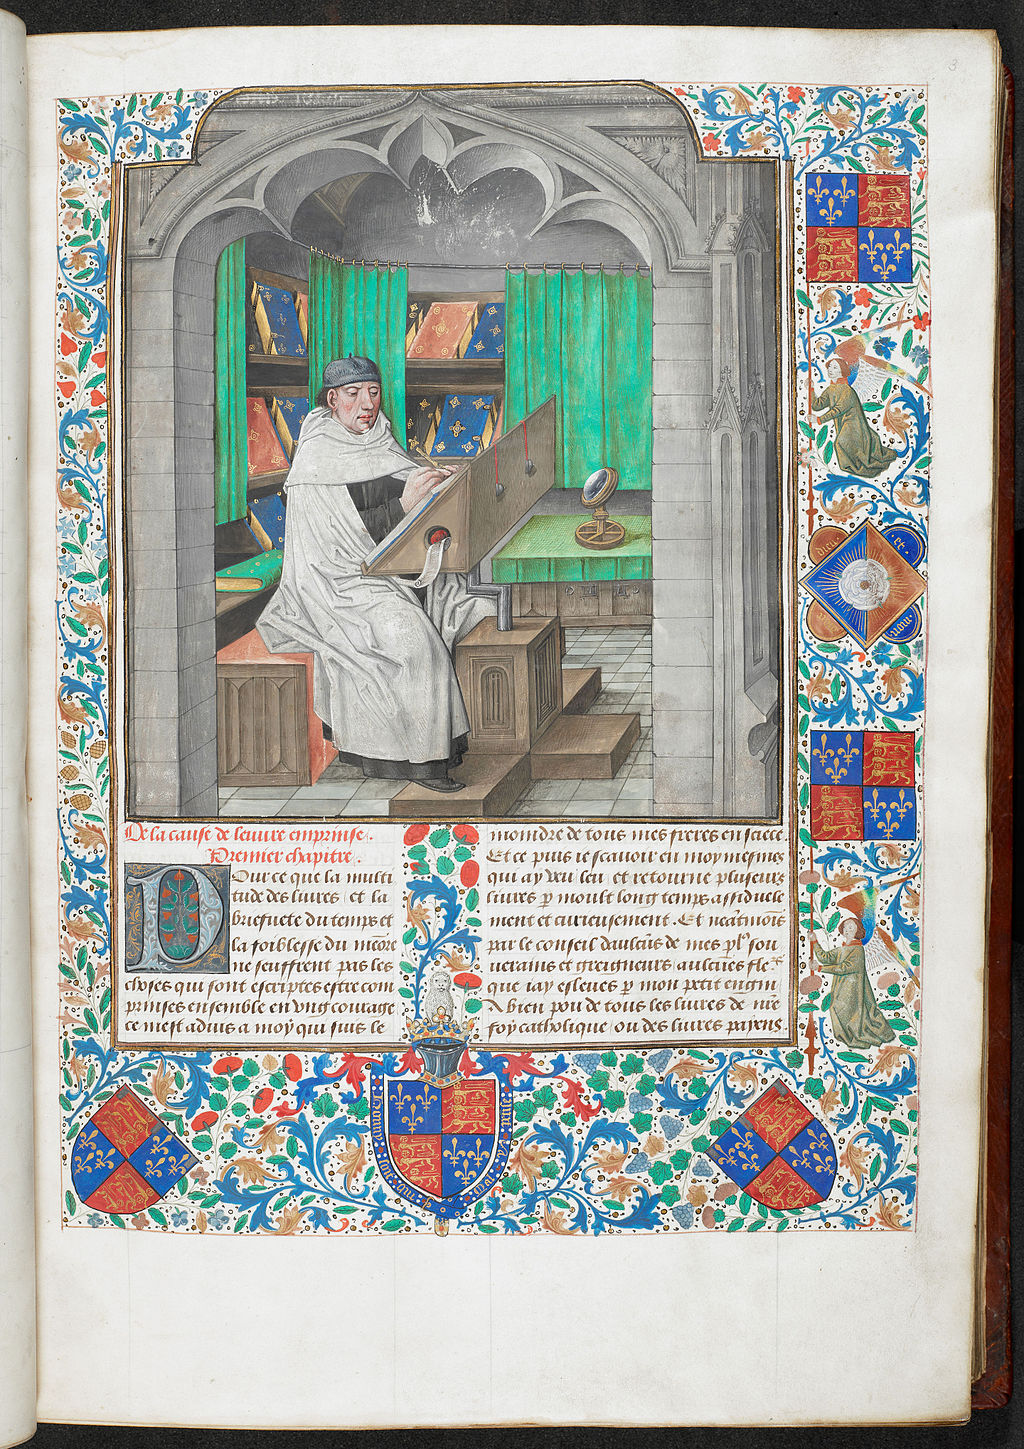 3
De la cause de leuure emprinse.
Premier chapitre.
Pour ce que la multi
tude des liures et la
briefuete du temps et
la foiblesse du memoire
ne seuffrent pas les
choses qui sont escriptes estre com
prinses ensemble en vng courage
ce mest aduis a moy qui suis le
moindre de tous mes freres en saece.
Et ce puis ie scauoir en moymesmes
qui ay veu leu et retourne plusieurs
liures p moult long temps assiduele
ment et curieusement. Et
par le conseil daulcuns de mes sou
uerains et greigneurs aulcunes
que iay esleues p mon petit engin
A bien pou de tous les liures de nre
foy catholique ou des liures payens.
dieu et
mon